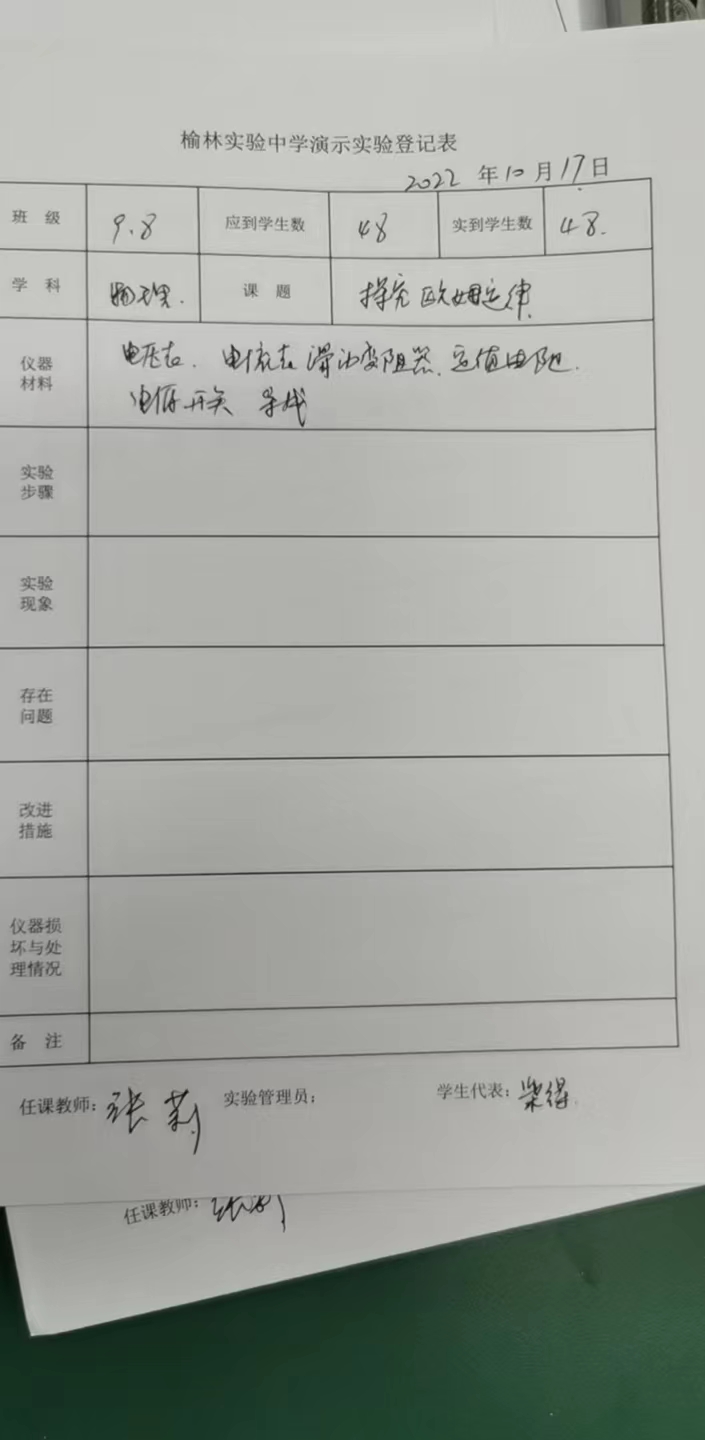 榆林实验中学演示实验登记表
2022 年 10 月 17 日
班 级 9.8 应到学生数 48 实到学生数 48.
学 科 物理. 课 题 探究欧姆定律
仪器材料 电压表. 电流表 滑动变阻器. 定值电阻.
电源 开关 导线
实验步骤
实验现象
存在问题
改进措施
仪器损坏与处理情况
备 注
任课教师: 张莉 实验管理员: 学生代表:
任课教师: 张莉